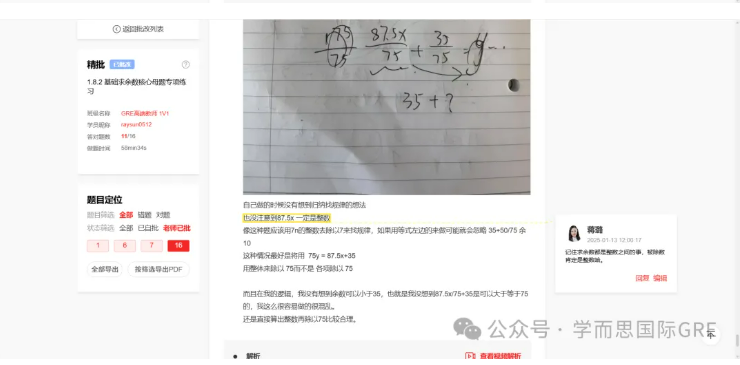 返回批改列表
精批 已批改
1.8.2 基础求余数核心母题专项练习
班级名称 GRE高端教师 1V1
学员昵称 raysun0512
答对题数 11/16
做题时间 58min34s
题目定位
题目筛选 全部 错题 对题
状态筛选 全部 已自批 老师已批
1 6 7 16
全部导出 按筛选导出PDF
87.5x
75 75 + 75
35 + ?
自己做的时候没有想到归纳找规律的想法
也没注意到87.5x 一定是整数
像这种题应该用7n的整数去除以7来找规律，如果用等式左边的来做可能就会忽略 35+50/75 余
10
这种情况最好是将用 75y = 87.5x+35
用整体来除以 75而不是 各项除以 75
而且在我的逻辑，我没有想到余数可以小于35，也就是我没想到87.5x/75+35是可以大于等于75
的，我这么很容易做的很混乱。
还是直接算出整数再除以75比较合理。
蒋璐
2025-01-13 12:00:17
记住求余数都是整数之间的事，被除数肯定是整数哈。
回复 编辑
解析
查看视频解析
公众号 · 学而思国际GRE